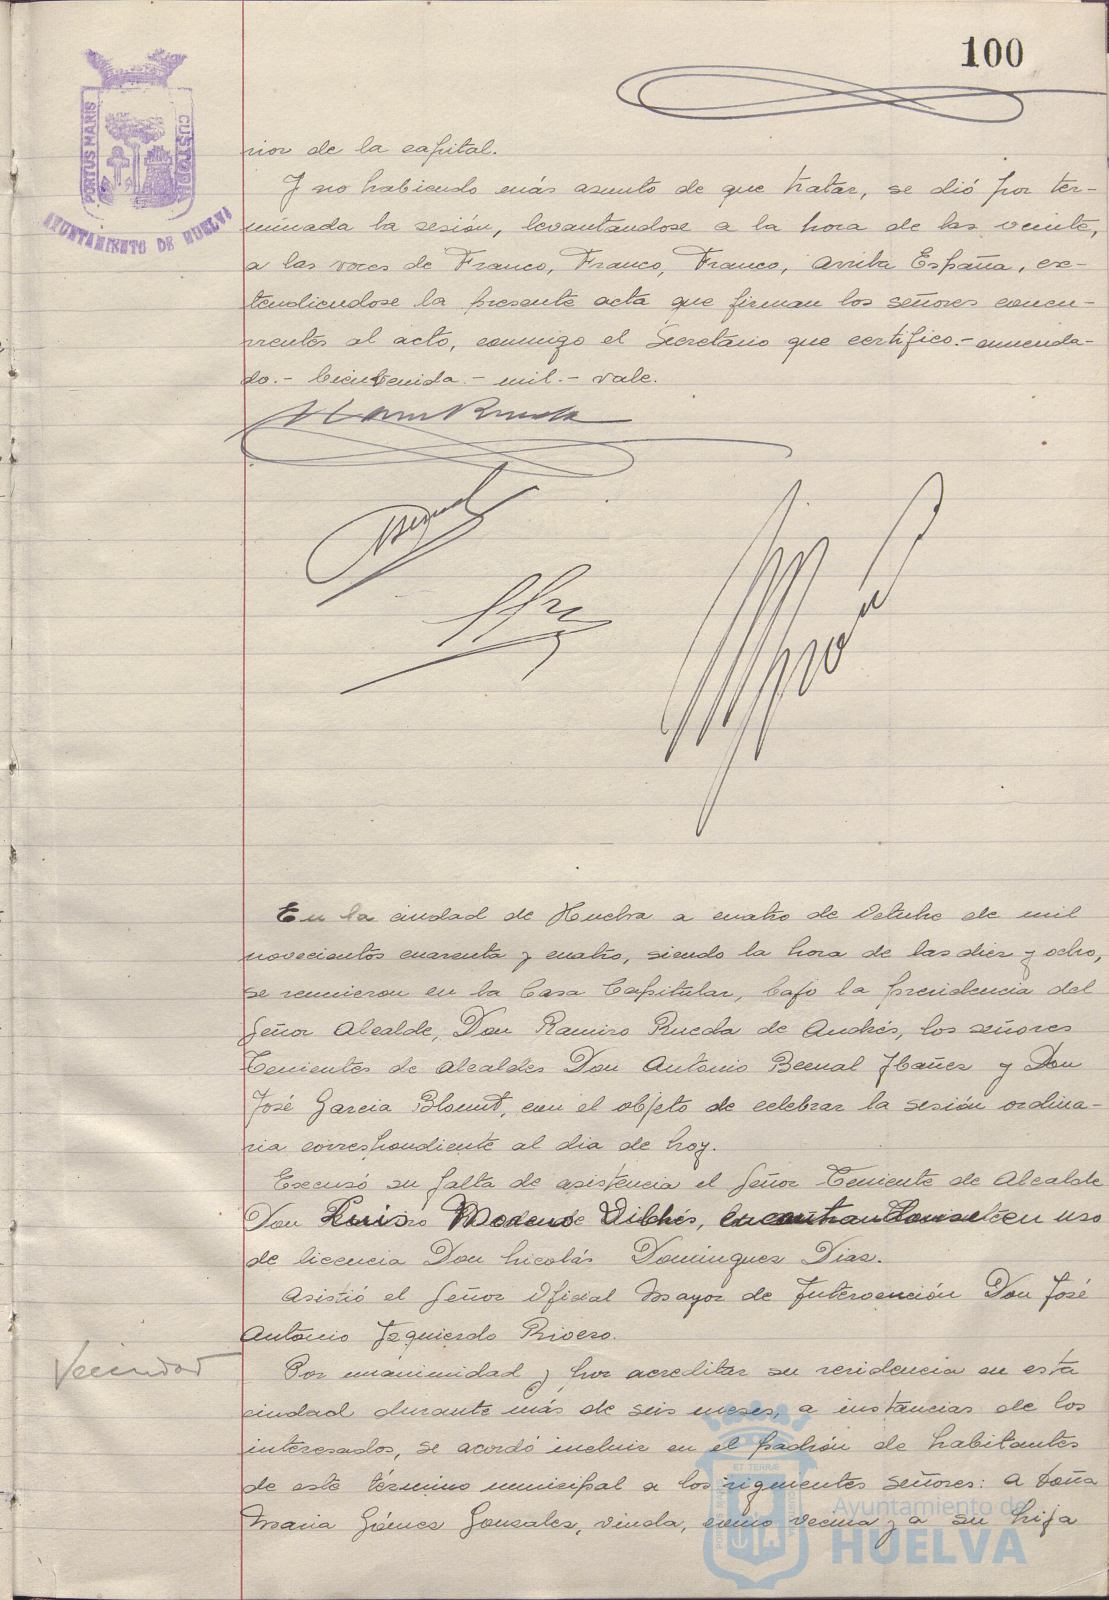 100
PORTUS MARIS
CUSTODIA
AYUNTAMIENTO DE HUELVA
rior de la capital.
Y no habiendo más asunto de que tratar, se dió por ter-
minada la sesión, levantandose a la hora de las veinte,
a las voces de Franco, Franco, Franco, Arriba España, ex-
tendiendose la presente acta que firman los señores concu-
rrentes al acto, conmigo el Secretario que certifico.- enmenda-
do.- bienvenida.- mil.- vale.
En la ciudad de Huelva a cuatro de Octubre de mil
novecientos cuarenta y cuatro, siendo la hora de las diez y ocho,
se reunieron en la Casa Capitular, bajo la presidencia del
Señor Alcalde, Don Ramiro Rueda de Andrés, los señores
Tenientes de Alcaldes Don Antonio Bernal Ibañez y Don
José Garcia Blount, con el objeto de celebrar la sesión ordina-
ria correspondiente al dia de hoy.
Escusó su falta de asistencia el Señor Teniente de Alcalde
Don Luis Moreno Vilches, encontrandose en uso
de licencia Don Nicolás Dominguez Diaz.
Asistió el Señor Oficial Mayor de Intervención Don José
Antonio Izquierdo Rivero.
Vecindad
Por unanimidad y por acreditar su residencia en esta
ciudad durante más de seis meses, a instancias de los
interesados, se acordó incluir en el padrón de habitantes
de este término municipal a los siguientes señores: A Doña
Maria Gómez Gonzalez, viuda, como vecina y a su hija
Ayuntamiento de
HUELVA